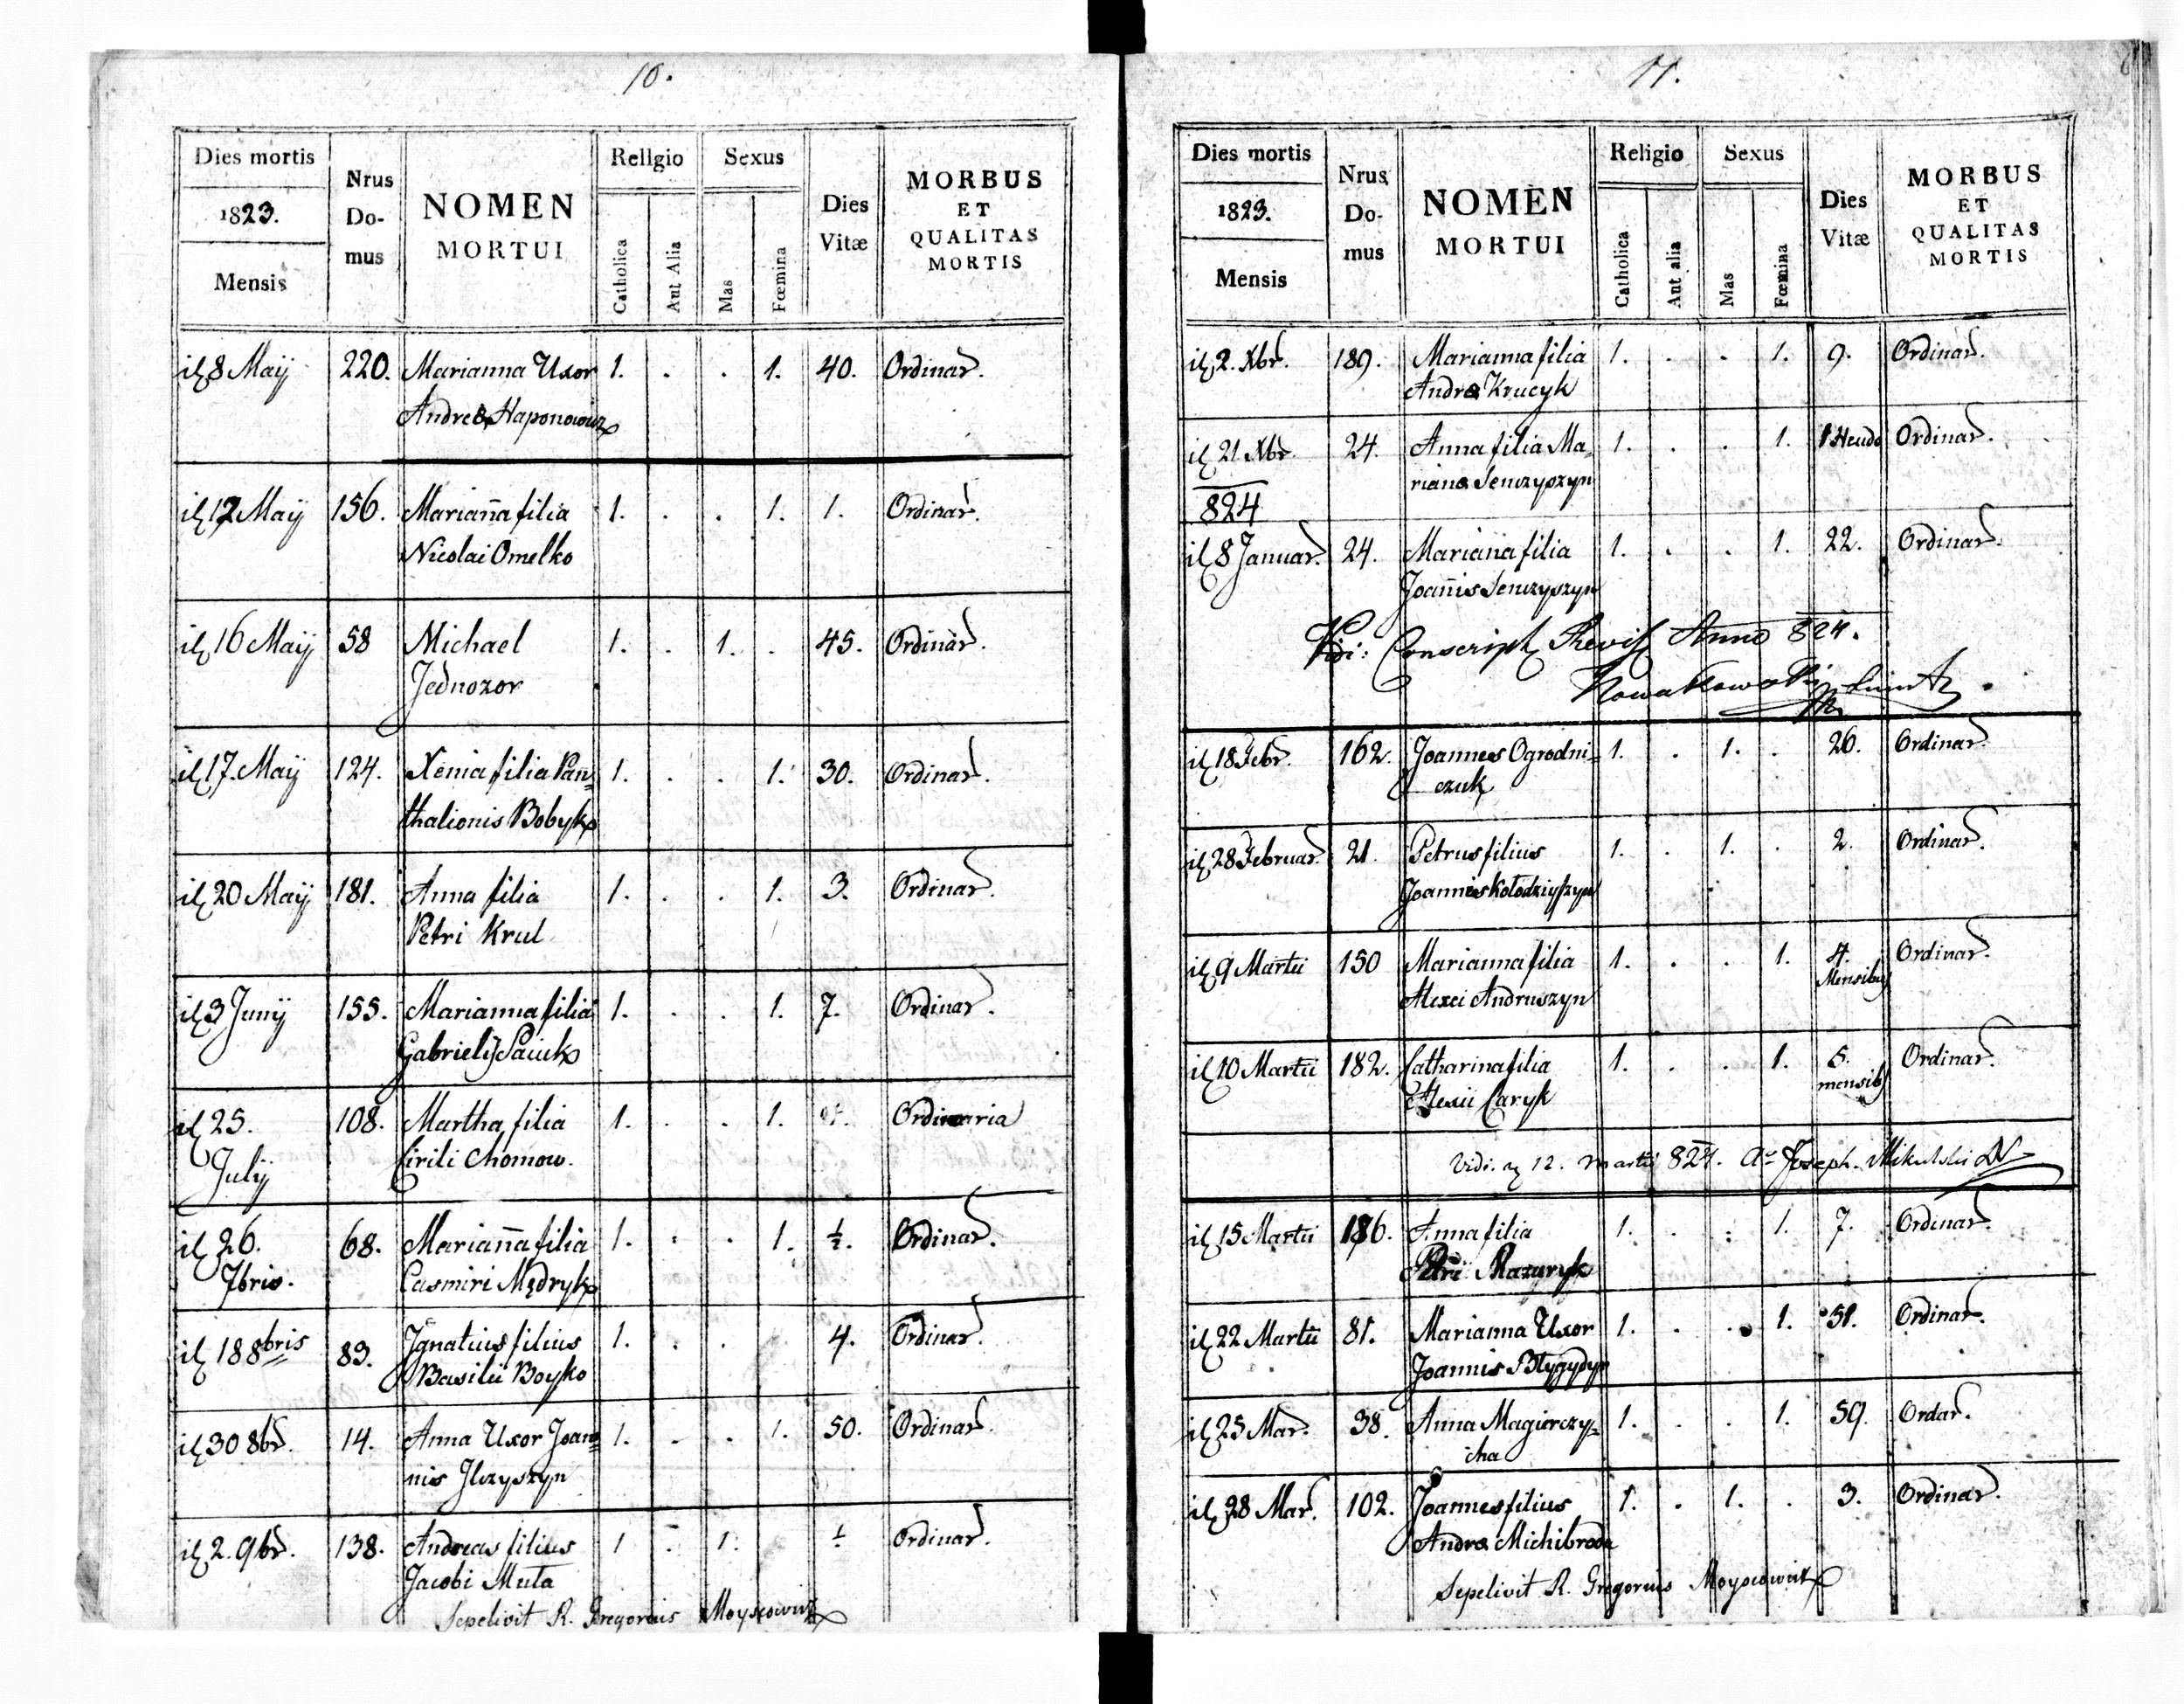 10.
Dies mortis
1823.
Mensis
Nrus Do- mus
NOMEN MORTUI
Religio
Catholica
Aut Alia
Sexus
Mas
Fœmina
Dies Vitæ
MORBUS ET QUALITAS MORTIS
8 Maij 220. Marianna Uxor 1. . . 1. 40. Ordinar.
Andreæ Haponowicz
12 Maij 156. Mariana filia 1. . . 1. 1. Ordinar.
Nicolai Omelko
16 Maij 58 Michael 1. . 1. . 45. Ordinar.
Jednozor
17. Maij 124. Xenia filia Pan= 1. . . 1. 30. Ordinar.
thalionis Bobyk
20 Maij 181. Anna filia 1. . . 1. 3. Ordinar.
Petri Krul
3 Junij 155. Marianna filia 1. . . 1. 7. Ordinar.
Gabrielij
25. 108. Martha filia 1. . . 1. Ordinaria
Julij Cirili Chomow.
26. 68. Mariana filia 1. . . 1. ½. Ordinar.
7bris. Casmiri Mędryk
18 8bris 83. Ignatius filius 1. . . 4. Ordinar.
Basilii Boyko
30 8br. 14. Anna Uxor Joan= 1. . . 1. 50. Ordinar.
nis Ilczyszyn
2. 9br. 138. Andreas filius 1 . 1. Ordinar.
Jacobi Muta
Sepelivit R. Gregorius Moysowicz
11.
Dies mortis
1823.
Mensis
Nrus Do- mus
NOMEN MORTUI
Religio
Catholica
Aut alia
Sexus
Mas
Fœmina
Dies Vitæ
MORBUS ET QUALITAS MORTIS
2. Xbr. 189. Marianna filia 1. . . 1. 9. Ordinar.
Andreæ Krucyk
21 Xbr. 24. Anna filia Ma= 1. . . 1. 1 Ordinar.
rianæ Senczyszyn
824
8 Januar. 24. Mariana filia 1. . . 1. 22. Ordinar.
Joanis Senczyszyn
Vidi: Conscript Anno 824.
Nowakowski
18 Febr. 162. Joannes Ogrodni= 1. . 1. . 26. Ordinar.
czuk
28 Februar. 21. Petrus filius 1. . 1. . 2. Ordinar.
Joannis Kołodziyszyn
9 Martii 150 Marianna filia 1. . . 1. 4. Ordinar.
Alexei Andruszyn Mensibus
10 Martii 182. Catharina filia 1. . . 1. 5. Ordinar.
Alexii Caryk mensib
Vidi. 12. Martij 824. Joseph. Mikulski
15 Martii 186. Anna filia 1. . . 1. 7. Ordinar.
Petri Mazuryk
22 Martii 81. Marianna Uxor 1. . . 1. 51. Ordinar.
Joannis
25 Mar. 38. Anna Magierczy= 1. . . 1. 59. Ordar.
cha
28 Mar. 102. Joannes filius 1. . 1. . 3. Ordinar.
Andreæ Michibroda
Sepelivit R. Gregorius Moysowicz